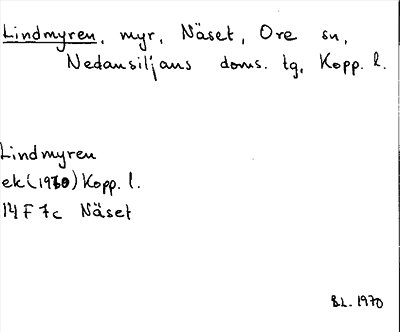 Lindmyren, myr, Näset, Ore sn,
Nedansiljans doms. tg, Kopp. l.
Lindmyren
ek (1970) Kopp. l.
14 F 7c Näset
B.L. 1970